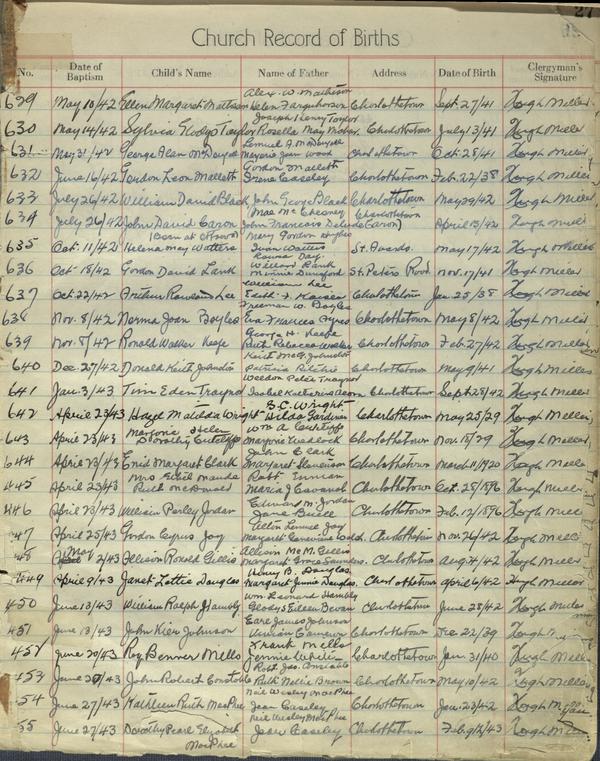 27
Church Record of Births
No. Date of Baptism Child's Name Name of Father Address Date of Birth Clergyman's Signature
Alex. W. Matheson
629 May 10/42 Ellen Margaret Matheson Helen Farquharson Charlottetown Sept. 27/41 Hugh Miller
Joseph Henry Taylor
630 May 14/42 Sylvia Gladys Taylor Rosella May Charlottetown July 13/41 Hugh Miller
Lemuel A. McDougall
631 May 31/42 George Alan McDougall Marjorie Jean Wood Charlottetown Oct. 28/41 Hugh Miller
Gordon Mallett
632 June 16/42 Leon Mallett Irene Caseley Charlottetown Feb. 22/38 Hugh Miller
633 July 26/42 William David Black John George Black Charlottetown May 29/42 Hugh Miller
Mae McChesney
634 July 26/42 John David Caron John Francois Caron Charlottetown April 13/42 Hugh Miller
(Born at Ottawa) Mary Gordon Hughes
635 Oct. 11/42 Helena May Watters Watters St. Avards May 17/42 Hugh Miller
Day
Willard Lank
636 Oct. 18/42 Gordon David Lank Minnie St. Peters Road Nov. 17/41 Hugh Miller
William Lee
637 Oct. 22/42 Arthur Rowland Lee Edith F. Charlottetown Jan. 25/38 Hugh Miller
W. Boyles
638 Nov. 8/42 Norma Joan Boyles Eva Frances Ayres Charlottetown May 8/42 Hugh Miller
George H. Keefe
639 Nov. 8/42 Ronald Walker Keefe Ruth Rebecca Walker Charlottetown Feb. 27/42 Hugh Miller
Keith McG. Johnston
640 Dec. 27/42 Donald Keith Johnston Patricia Ritchie Charlottetown May 9/41 Hugh Miller
Weedon Peter Traynor
641 Jan. 3/43 Tim Eden Traynor Isabel Katherine Charlottetown Sept 28/42 Hugh Miller
B. C. Wright
642 April 23/43 Hazel Matilda Wright Hilda Gardiner Charlottetown May 25/29 Hugh Miller
Marjorie Helen Wm A Cutcliffe
643 April 23/43 Dorothy Cutcliffe Marjorie Charlottetown Nov. 18/29 Hugh Miller
John Clark
644 April 23/43 Enid Margaret Clark Margaret Stevenson Charlottetown March 11/1920 Hugh Miller
Mrs Ethel Maude Robt.
445 April 23/43 Ruth McDonald Maria J. Cavanah Charlottetown Oct. 28/1896 Hugh Miller
Edward M. Jordan
446 April 23/43 William Perley Jordan Jane Charlottetown Feb. 12/1896 Hugh Miller
Lemuel Jay
47 April 25/43 Gordon Cyrus Jay Margaret Genevieve Charlottetown Nov. 26/42 Hugh Miller
May Allison McM. Gillis
48 2/43 Allison Ronald Gillis Margaret Grace Saunders Charlottetown Aug. 4/42 Hugh Miller
Henry B. Douglas
449 April 9/43 Janet Lottie Douglas Margaret Jennie Douglas Charlottetown April 6/42 Hugh Miller
Wm Leonard Hambly
450 June 13/43 William Ralph Hambly Gladys Eileen Bevan Charlottetown June 28/42 Hugh Miller
Earl James Johnson
451 June 13/43 John Kier Johnson Vivian Cameron Charlottetown Dec 22/39 Hugh
Frank Mills
452 June 20/43 Roy Benner Mills Jennie White Charlottetown Jan. 31/40 Hugh Miller
Robt. Jas. Constable
453 June 20/43 John Robert Constable Ruth Nellie Brown Charlottetown May 10/42 Hugh Miller
Neil Wesley MacPhee
454 June 27/43 Kathleen Ruth MacPhee Jean Caseley Charlottetown Jan. 23/42 Hugh Miller
Neil Wesley MacPhee
55 June 27/43 Dorothy Pearl Elizabeth Jean Caseley Charlottetown Feb. 9/43 Hugh Miller
MacPhee